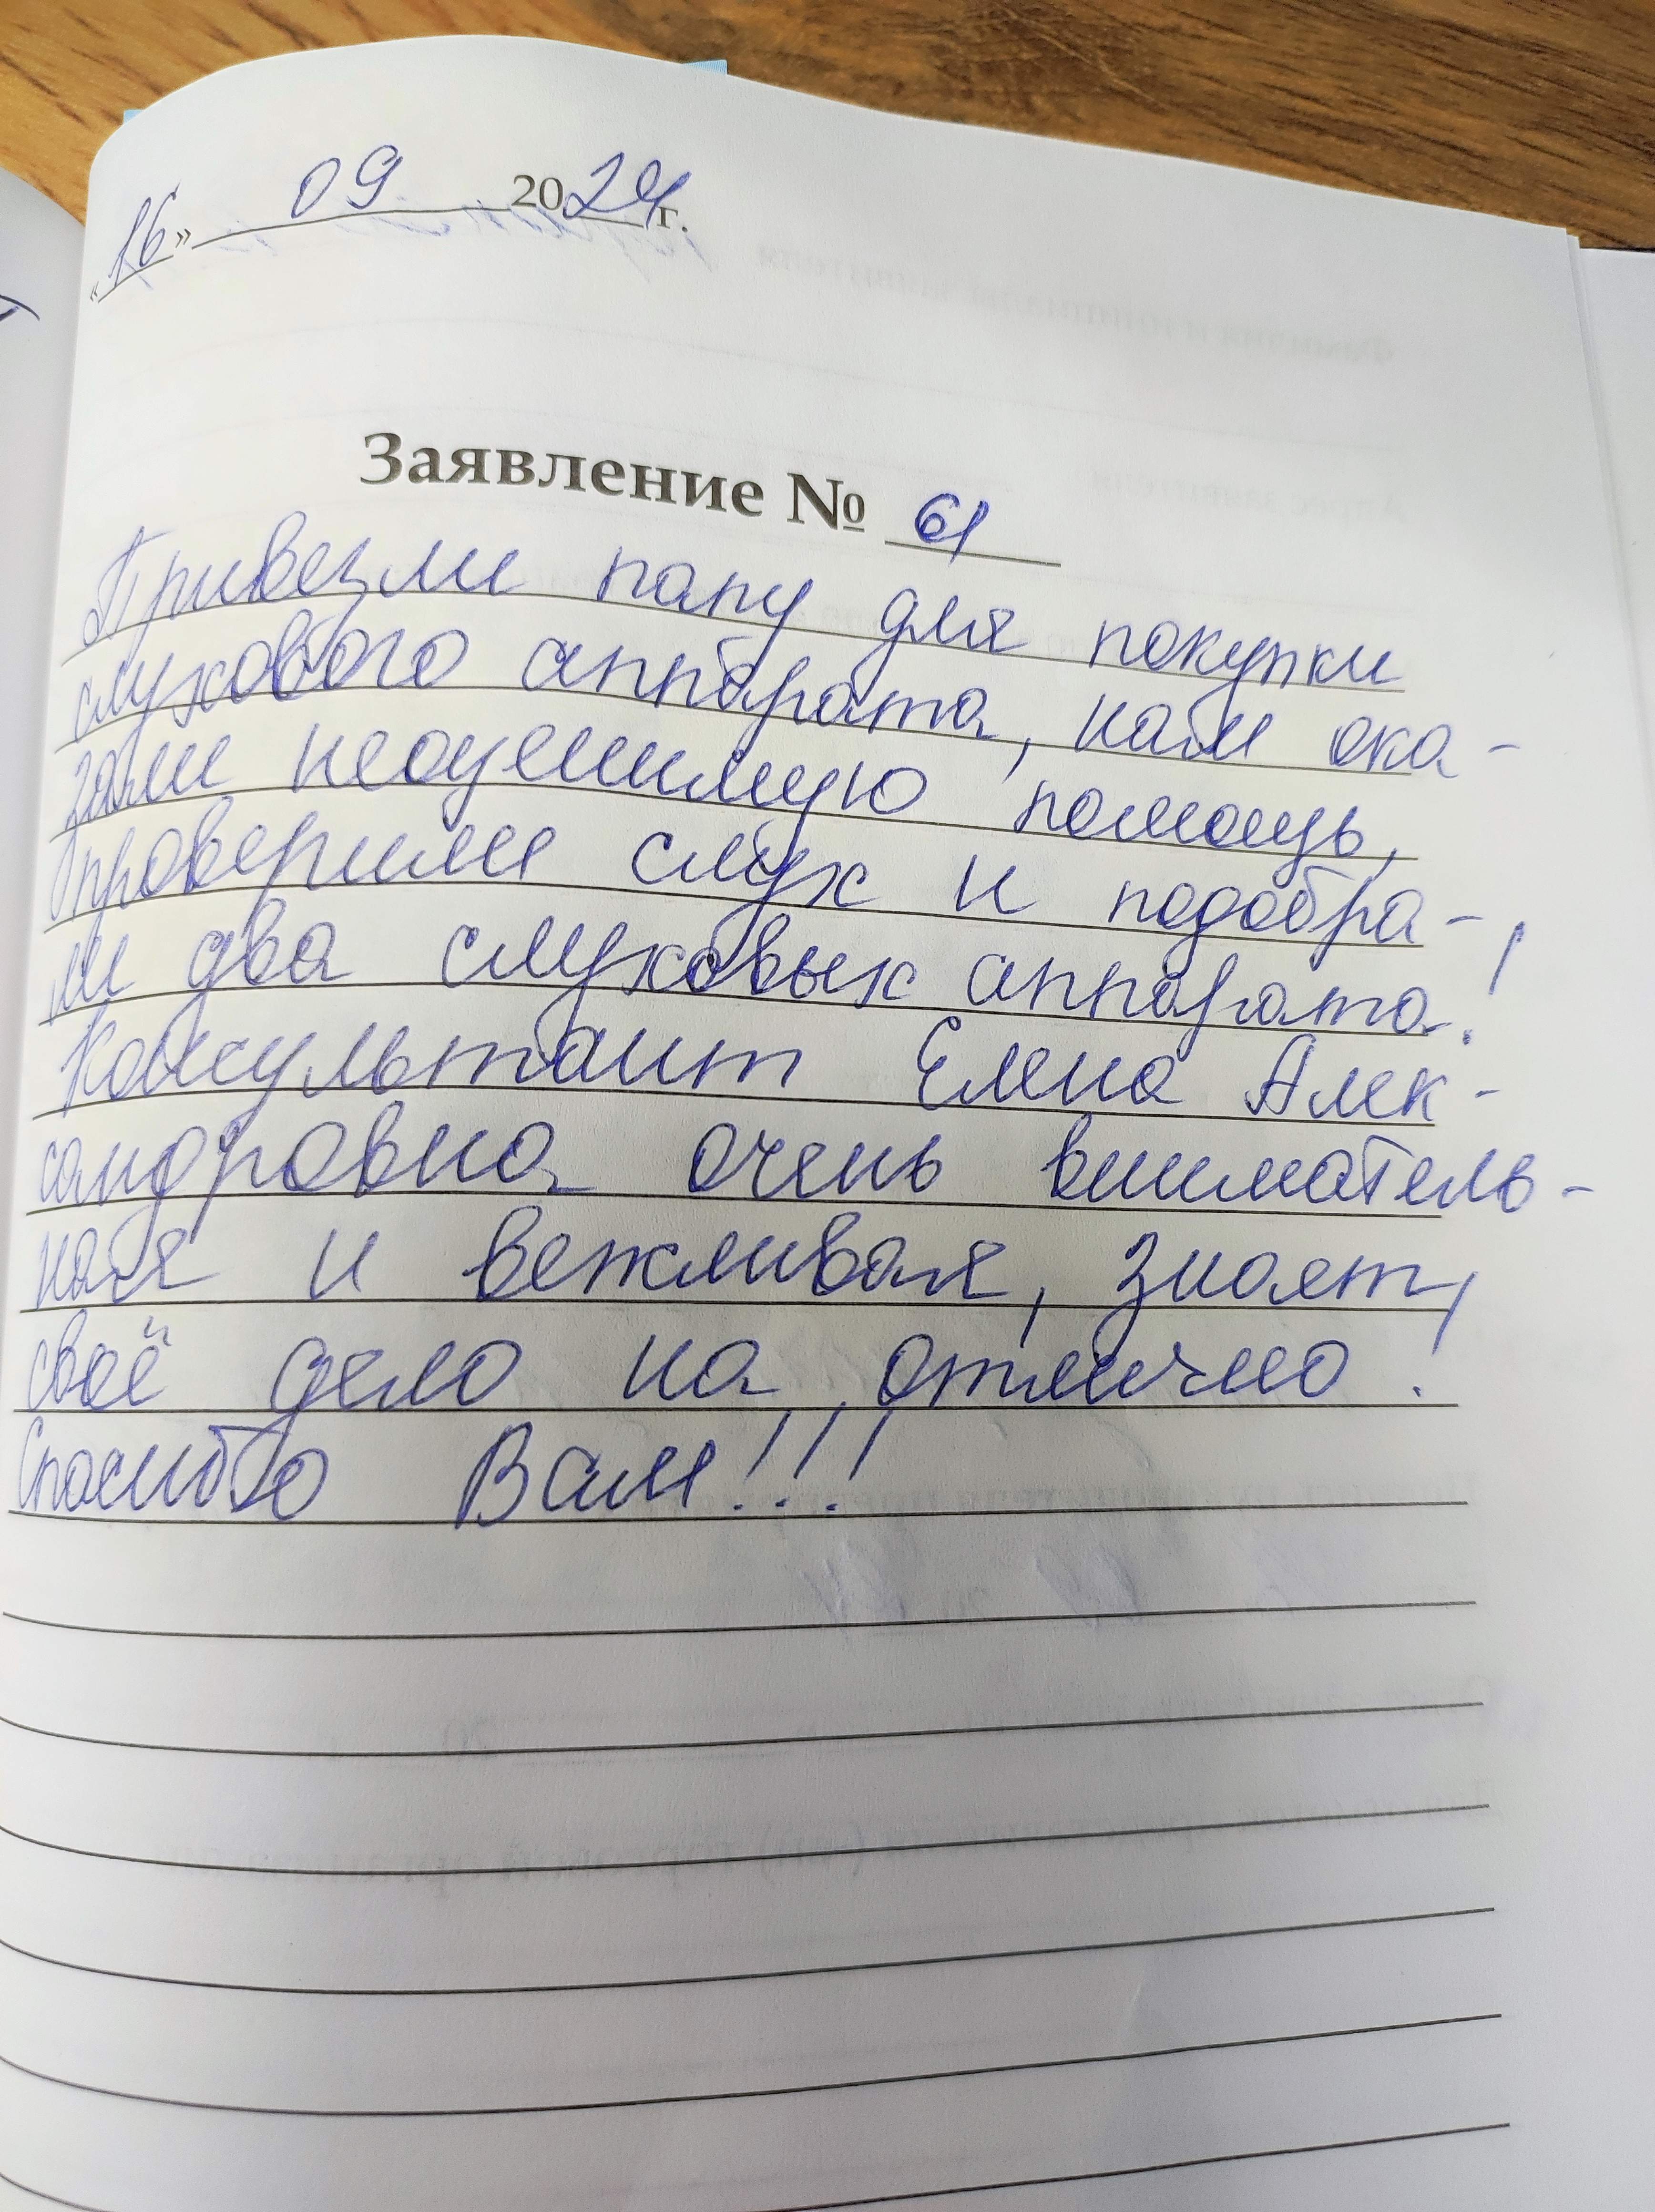 «16» 09 2024 г.
Заявление № 61
Привезли папу для покупки
слухового аппарата, нам ока-
зали неоценимую помощь,
проверили слух и подобра-
ли два слуховых аппарата!
Консультант Елена Алек-
сандровна очень вниматель-
ная и вежливая, знает
своё дело на отлично!
Спасибо Вам!!!